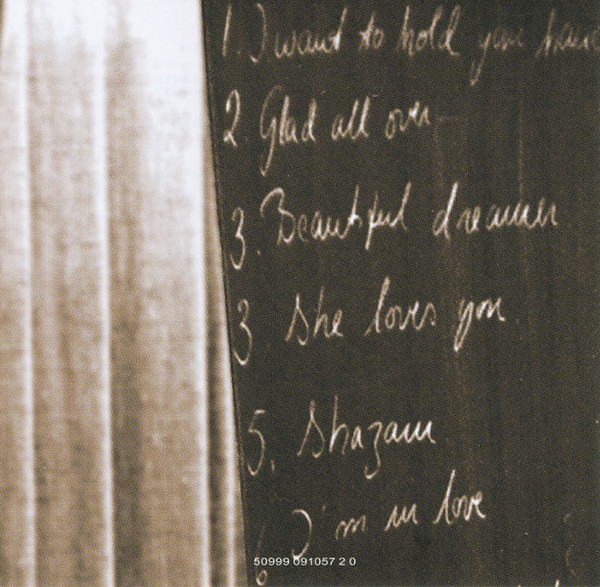 1. I want to hold your hand
2. Glad all over
3. Beautiful dreamer
3 She loves you.
5. Shazam
6 I'm in love
50999 091057 2 0